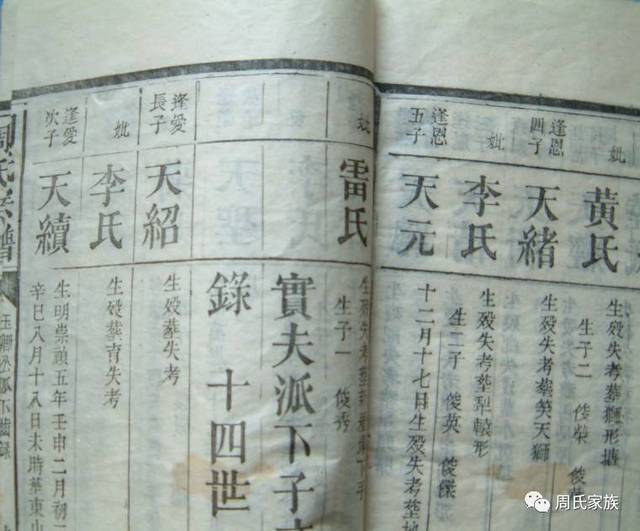 妣
黃氏
生殁失考葬獅形塘
生子二 俊榮
逢恩四子
天緒
生殁失考葬笑天獅
妣
李氏
生殁失考葬犁轅形
生二子 俊英 俊傑
逢恩五子
天元
十二月十七日生殁失考葬地
妣
雷氏
生子一 俊秀
實夫派下子
錄 十四世
逢愛長子
天紹
生殁葬失考
妣
李氏
生殁葬育失考
逢愛次子
天續
生明崇禎五年壬申二月初
辛巳八月十八日未時葬東山
周氏宗譜
周氏家族